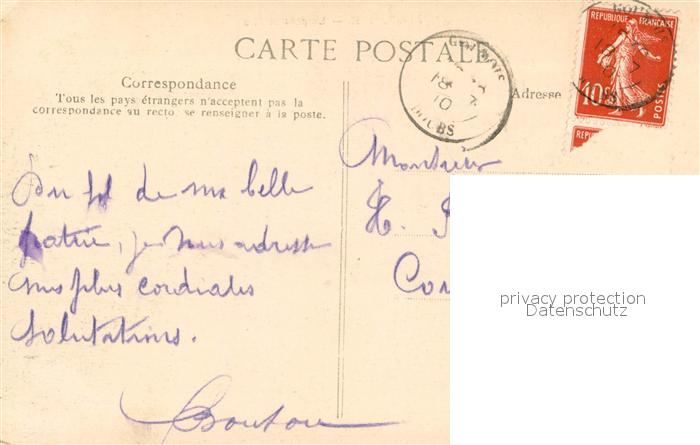 CARTE POSTALE
Correspondance
Tous les pays étrangers n'acceptent pas la
correspondance au recto, se renseigner à la poste.
Adresse
REPUBLIQUE FRANÇAISE
10c
POSTES
DOUBS
18
10
Monsieur
H.
Du sol de ma belle
patrie, je vous adresse
mes plus cordiales
Salutations.
privacy protection
Datenschutz